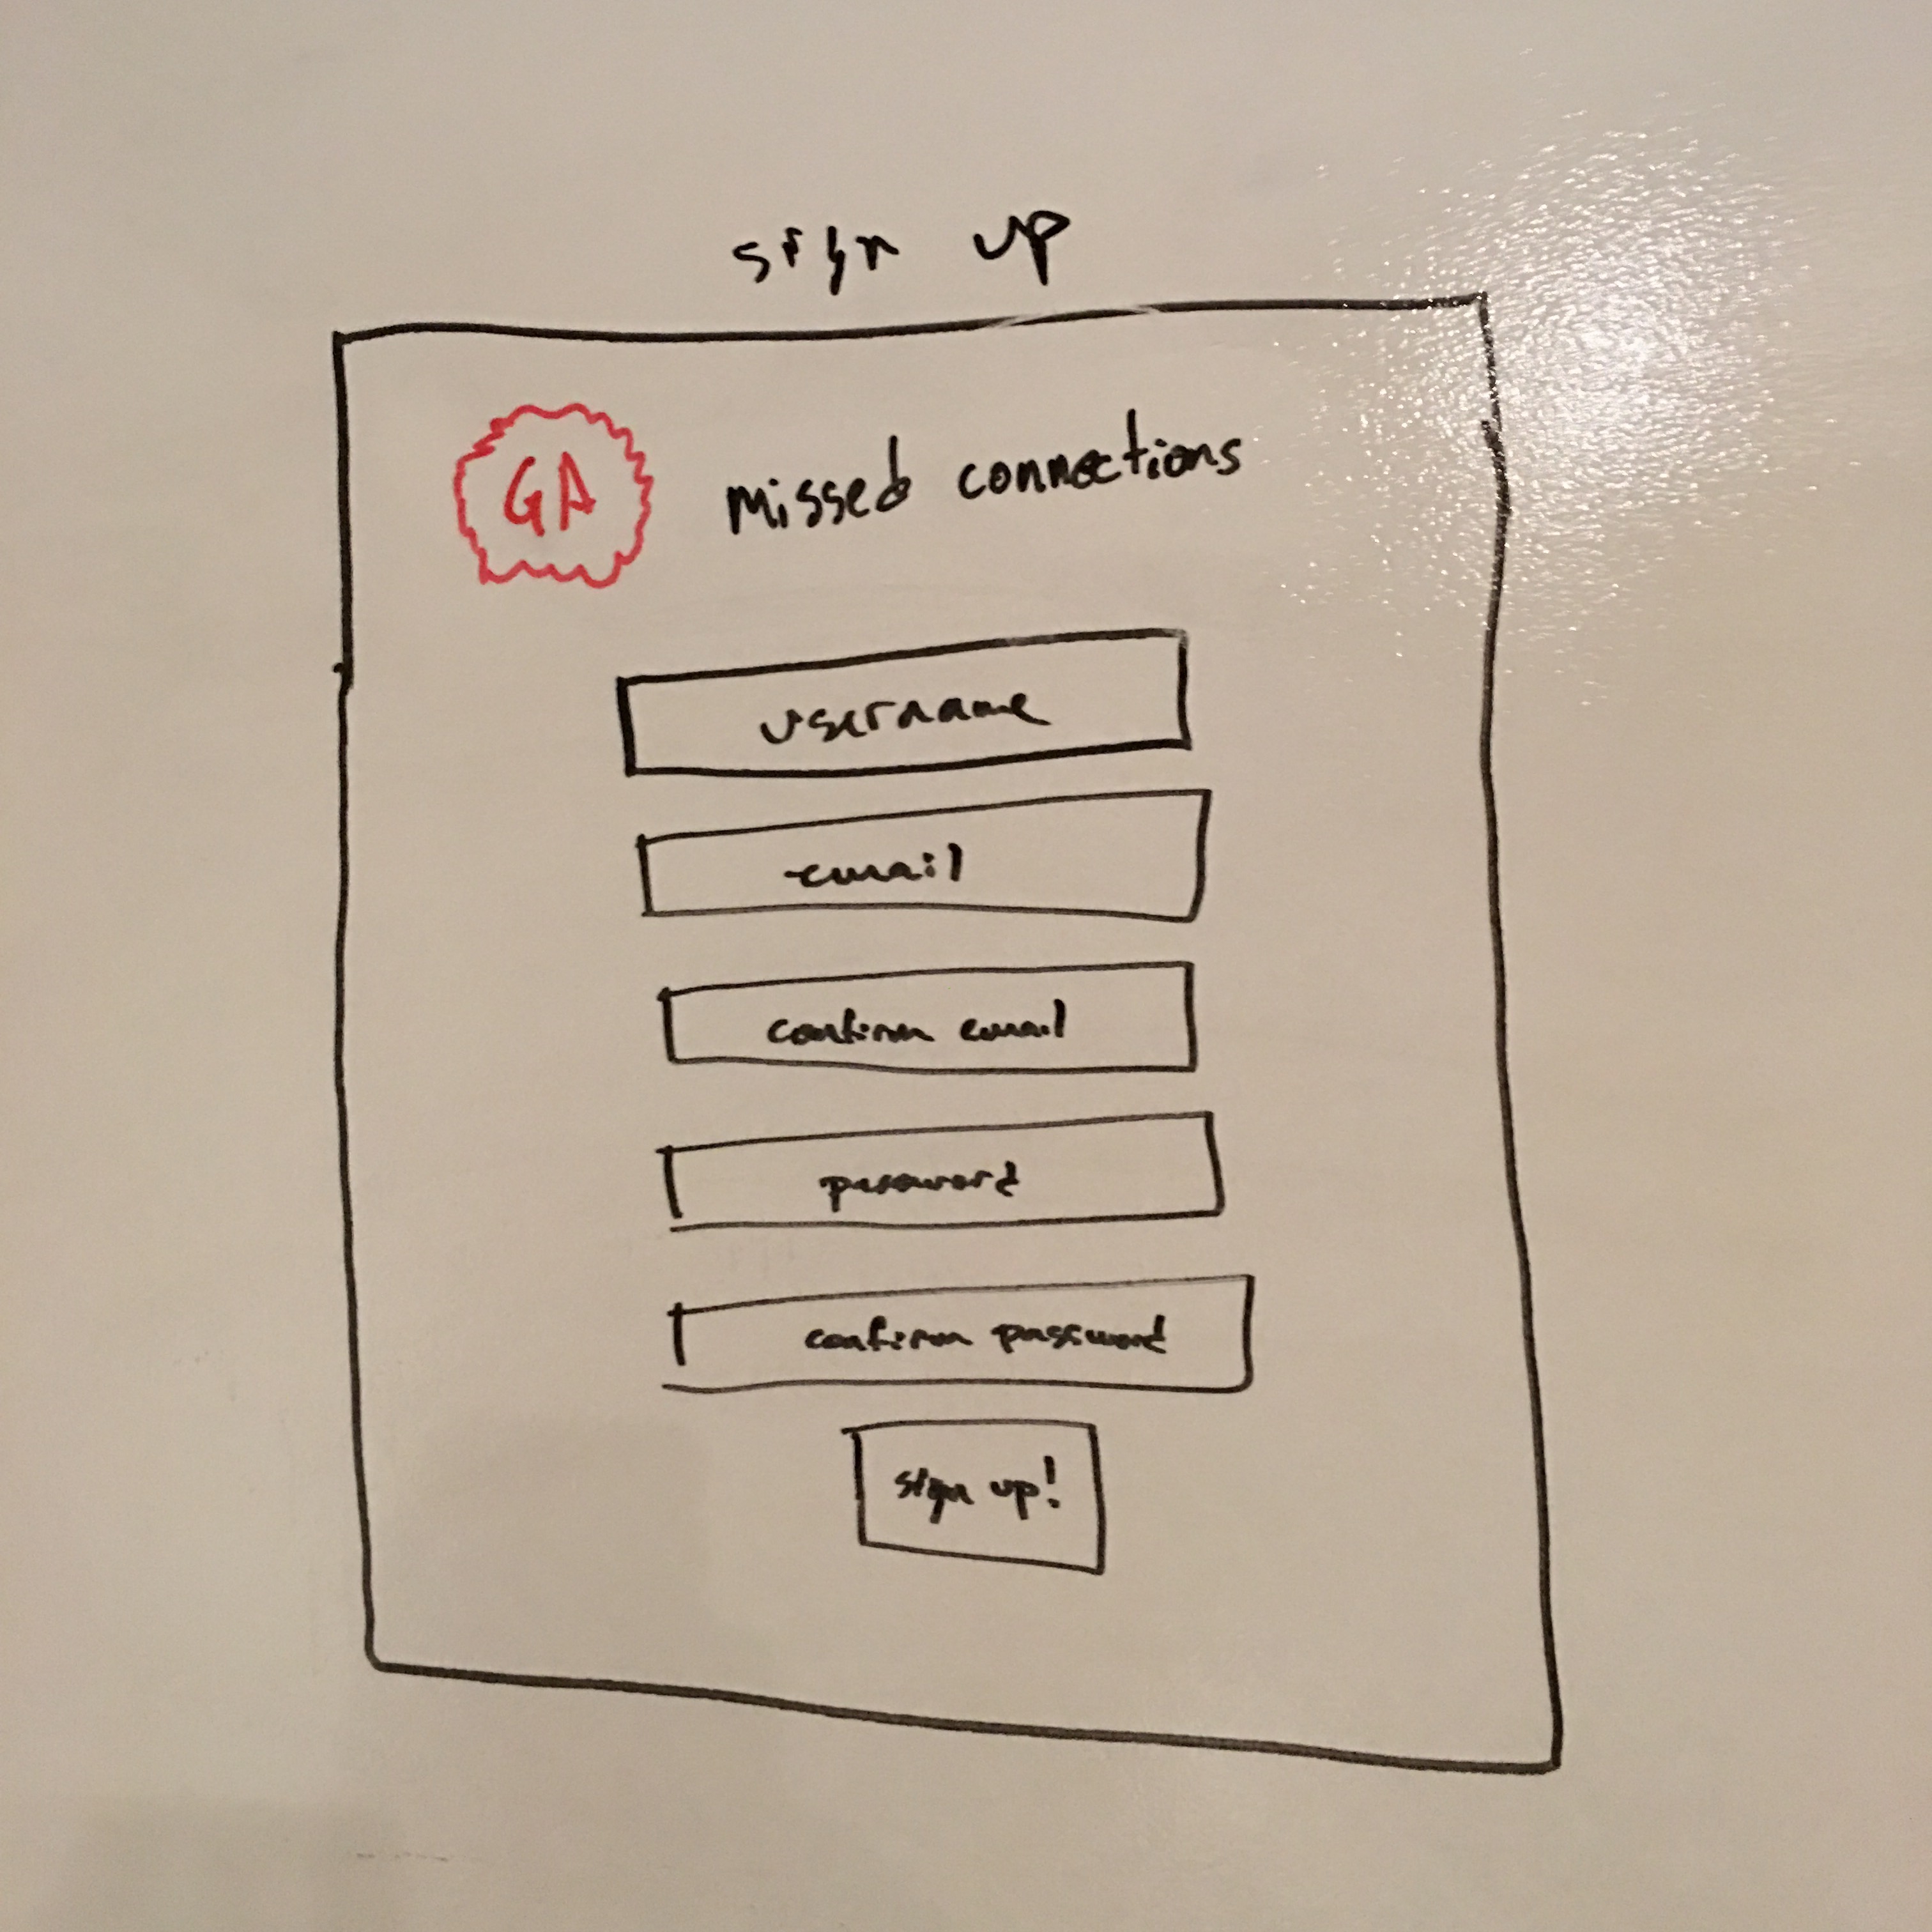 sign up
GA missed connections
username
email
confirm email
password
confirm password
sign up!